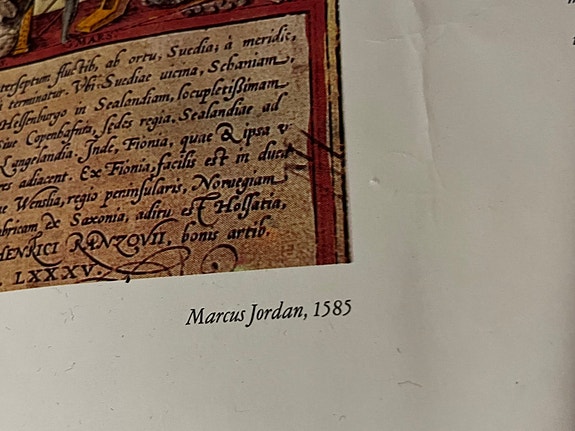 MARS.
terseptum fluctib, ab ortu, Suedia; à meridie,
terminatur. Vbi Suediae uicina, Scbaniam,
Helsenburgo in Sealandiam, locupletißimam
Siue Copenhafnia, sedes regia. Sealandiae ad
Langelandia. Inde, Fionia, quae & ipsa v
res adiacent. Ex Fionia, facilis est in ducat
ue Wensila, regio peninsularis, Noruegiam
bricam. Ex Saxonia, aditu est Holsatia,
HENRICI RANZOVII, bonis artib.
LXXXV.
Marcus Jordan, 1585